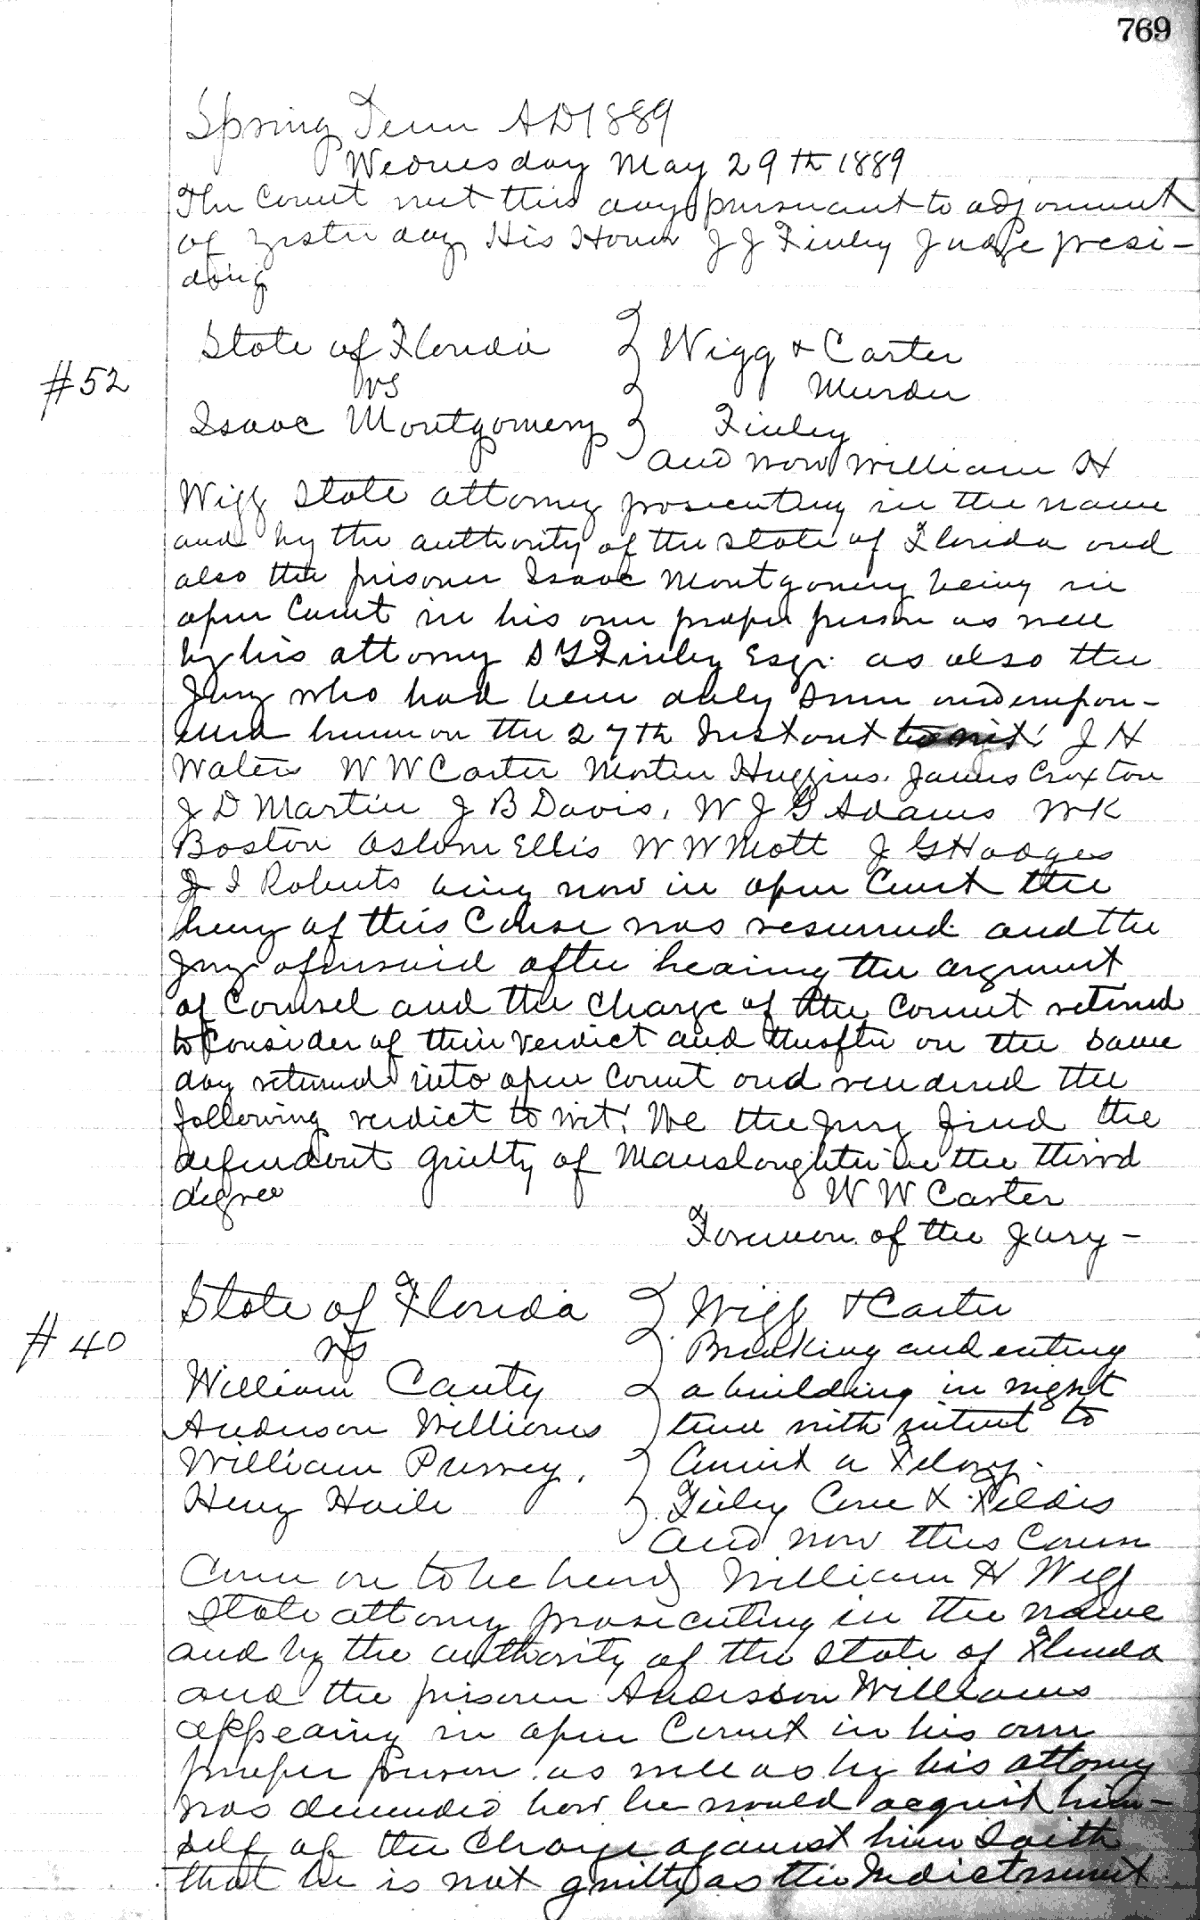 769
Spring Term AD 1889
Wednesday May 29th 1889
The Court met this day pursuant to adjornment
of yesterday His Honor J J Finley Judge presi-
ding
State of Florida Wigg & Carter
#52 vs Murder
Isaac Montgomery Finley
And now William H
Wigg State attorney prosecuting in the name
and by the authority of the State of Florida and
also the prisoner Isaac Montgomery being in
open Court in his own proper person as well
by his attorney Finley Esqr. as also the
Jury who had been duly sworn and empan-
eled herein on the 27th Instant to wit: J H
Waters W W Carter Morten Huggins. James Croxton
J D Martin J B Davis, W J G Adams W K
Boston Ellis W W Mott J G Hodges
J I Roberts being now in open Court the
of this Cause was resumed and the
Jury aforesaid after hearing the argument
of Counsel and the Charge of the Court retired
to Consider of their verdict and on the same
day returned into open Court and rendered the
following verdict to wit: We the Jury find the
defendant guilty of Manslaughter in the third
degree W W Carter
Foreman of the Jury -
State of Florida Wigg & Carter
#40 vs Breaking and entering
William Canty a building in night
Anderson Williams time with intent to
William Pursey, Commit a Felony.
Henry Haile Finley &
And now this Cause
Came on to be heard William H Wigg
State attorney prosecuting in the name
and by the authority of the State of Florida
and the prisoner Anderson Williams
appearing in open Court in his own
proper person as well as by his attorney
was demanded how he would acquit him-
self of the Charge against him Saith
that he is not guilty as the Indictment